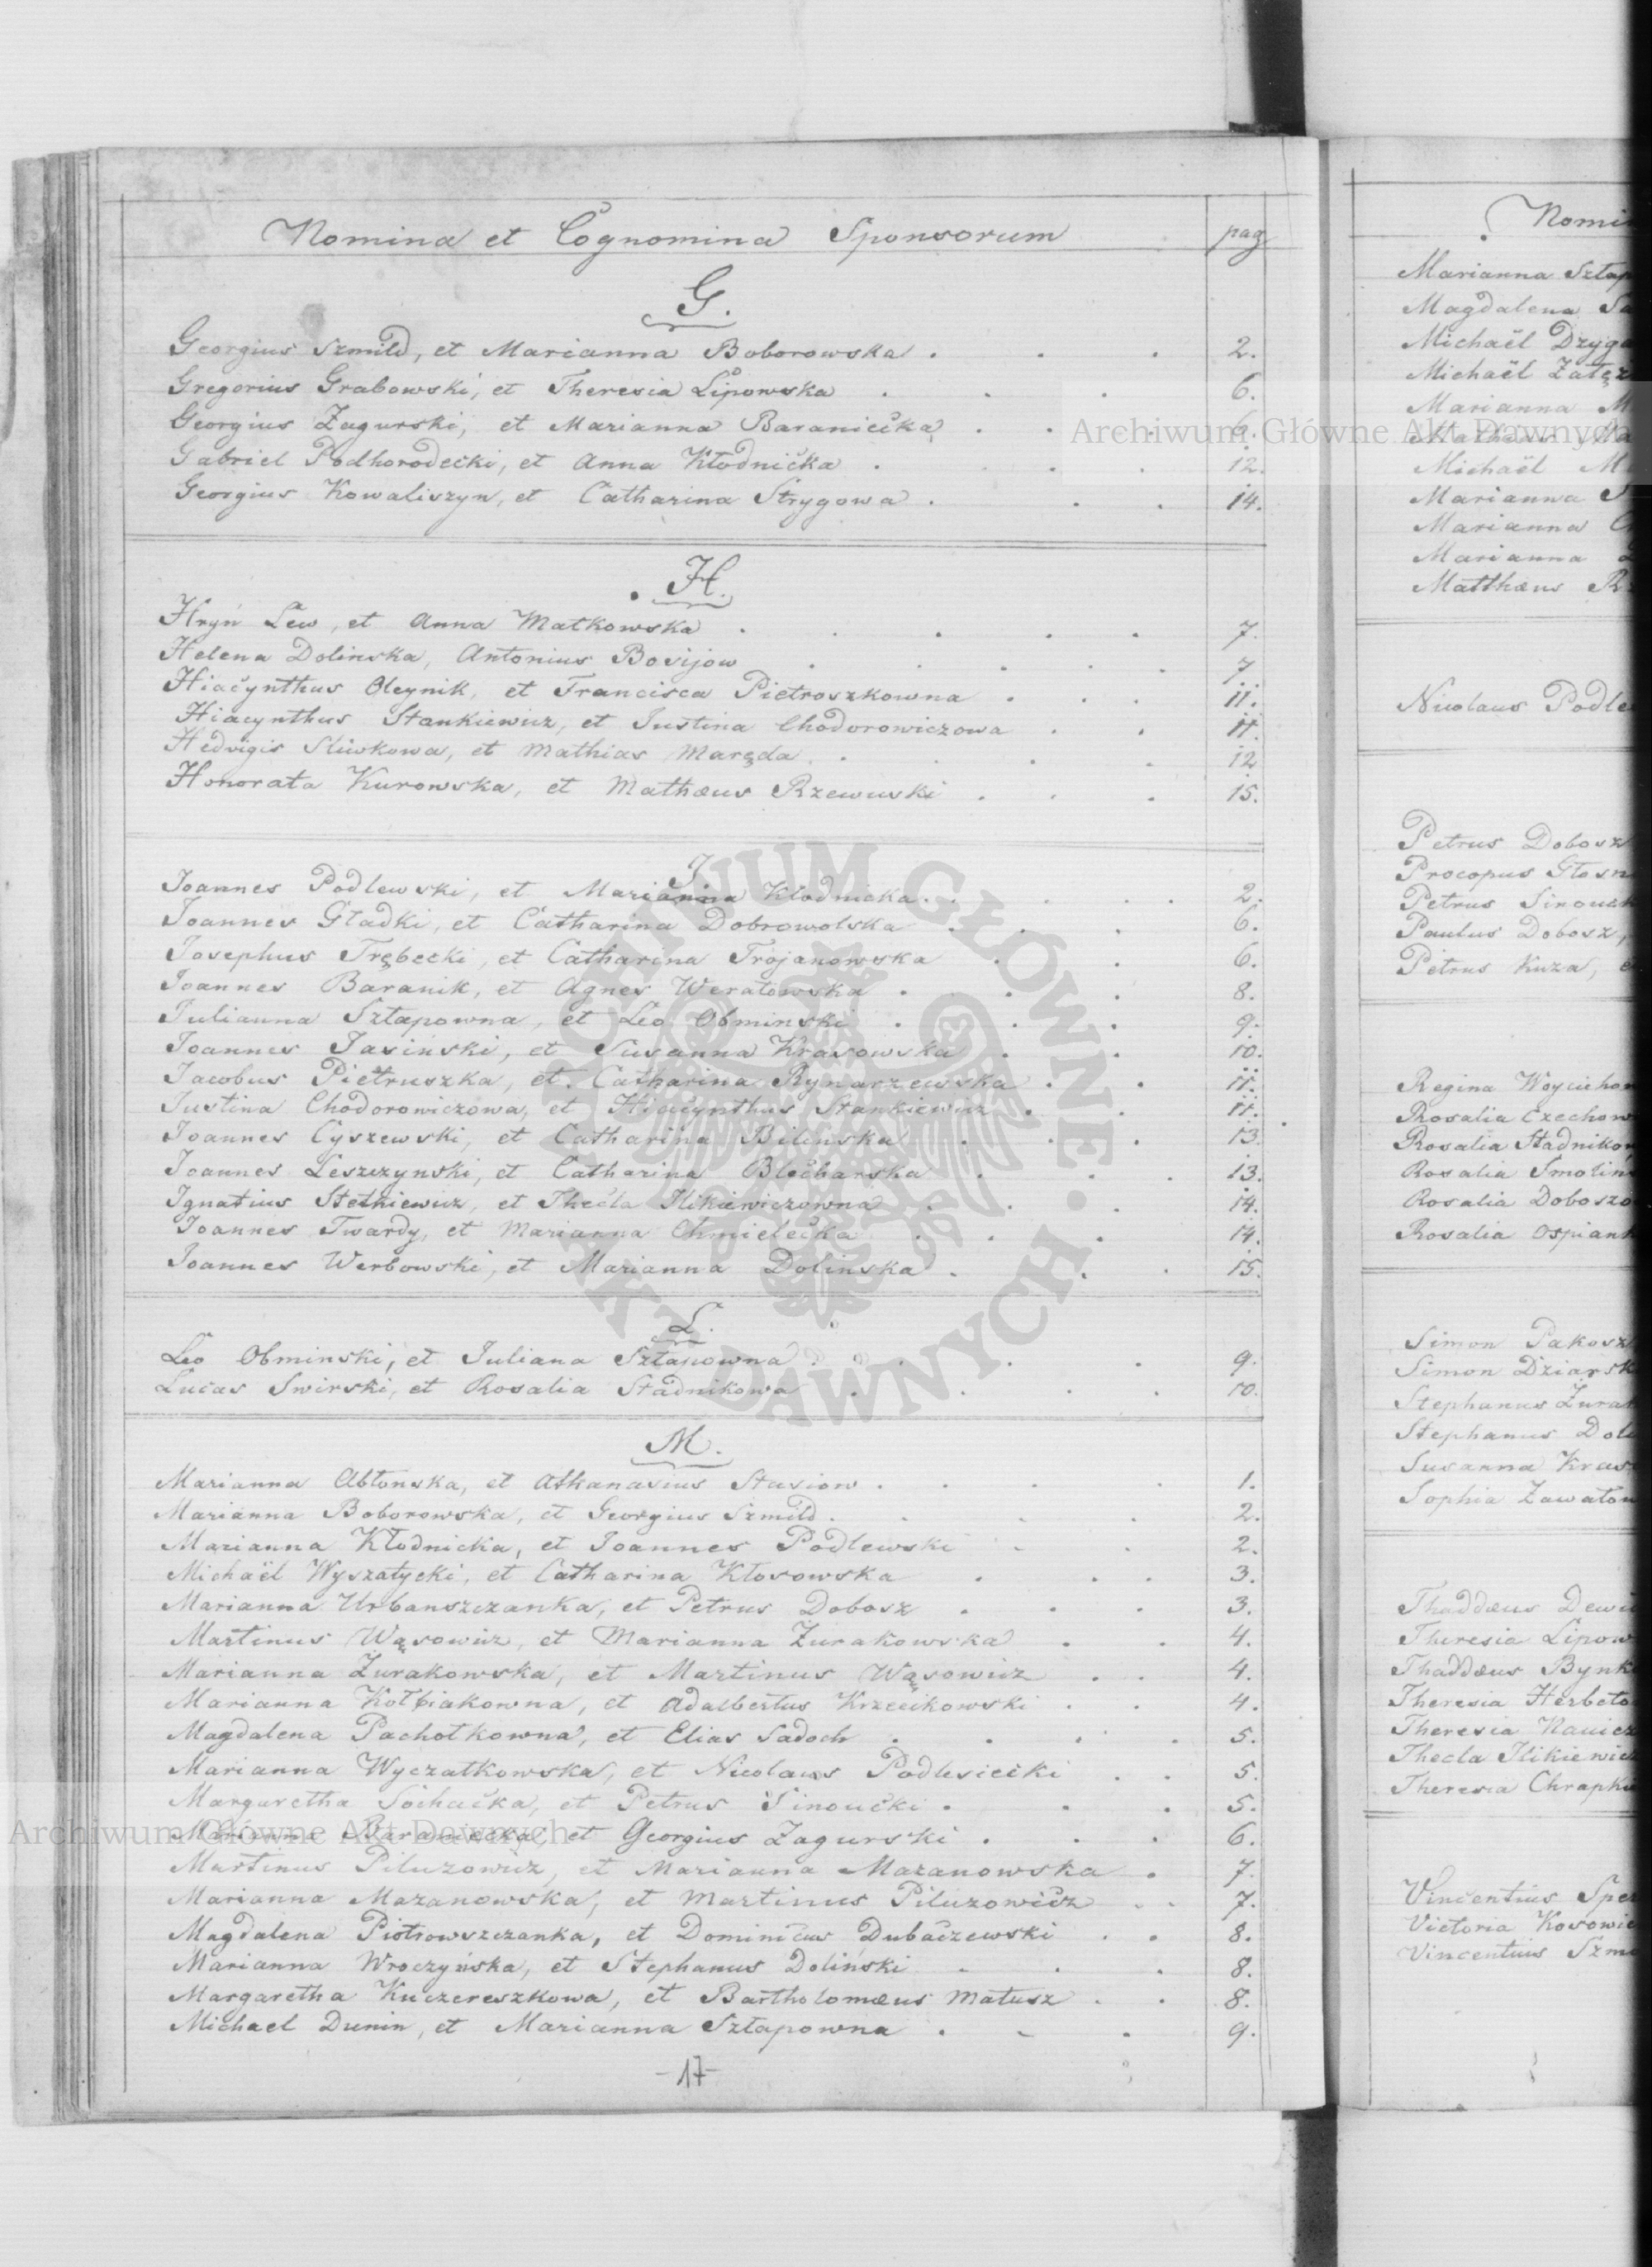 Nomina et Cognomina Sponsorum pag
G.
Georgius Szmild, et Marianna Boborowska . . . 2.
Gregorius Grabowski, et Theresia Lipowska . . . 6.
Georgius Zagurski, et Marianna Baraniecka . . . 6.
Gabriel Podhorodecki, et Anna Kłodnicka . . . 12.
Georgius Kowaliszyn, et Catharina Strygowa . . . 14.
H.
Hryń Lew, et Anna Matkowska . . . . . 7.
Helena Dolinska, Antonius Bosijow . . . . . 7.
Hiacynthus Oleynik, et Francisca Pietroszkowna . . . 11.
Hiacynthus Stankiewicz, et Justina Chodorowiczowa . . 11.
Hedvigis Sliwkowa, et Mathias Maręda . . . . 12
Honorata Kurowska, et Mathæus Rzewuski . . . 15.
J.
Joannes Podlewski, et Marianna Kłodnicka . . . . . 2.
Joannes Gładki, et Catharina Dobrowolska . . . 6.
Josephus Trębecki, et Catharina Trojanowska . . 6.
Joannes Baranik, et Agnes Weratowska . . . . 8.
Julianna Sztapowna, et Leo Obminski . . . 9.
Joannes Jasiński, et Susanna Krasowska . . 10.
Jacobus Pietruszka, et Catharina Rynarzewska . . 11.
Justina Chodorowiczowa, et Hiacynthus Stankiewicz . . 11.
Joannes Cyszewski, et Catharina Bilinska . . . 13.
Joannes Leszczynski, et Catharina Blecharska . . . 13.
Ignatius Stetkiewicz, et Thecla Ilikiewiczowna . . . 14.
Joannes Twardy, et Marianna Chmielecka . . . 14.
Joannes Werbowski, et Marianna Dolinska . . . 15.
L.
Leo Obminski, et Juliana Sztapowna . . . . 9.
Lucas Swirski, et Rosalia Stadnikowa . . . . 10.
M.
Marianna Abłonska, et Athanasius Stasiow . . . . 1.
Marianna Boborowska, et Georgius Szmild . . . . 2.
Marianna Kłodnicka, et Joannes Podlewski . . 2.
Michaël Wyszatycki, et Catharina Kłosowska . . . 3.
Marianna Urbanszczanka, et Petrus Dobosz . . . 3.
Martinus Wąsowicz, et Marianna Żurakowska . . 4.
Marianna Żurakowska, et Martinus Wąsowicz . . 4.
Marianna Kołbiakowna, et Adalbertus Krzecikowski . . 4.
Magdalena Pachołkowna, et Elias Sadoch . . . . 5.
Marianna Wyczałkowska, et Nicolaus Podlesiecki . . 5.
Margaretha Sochacka, et Petrus Sinoucki . . . 5.
Marianna Baraniecka et Georgius Zagurski . . . 6.
Martinus Piluzowicz, et Marianna Mazanowska . 7.
Marianna Mazanowska, et Martinus Piluzowicz . . 7.
Magdalena Piotrowszczanka, et Dominicus Dubaczewski . . 8.
Marianna Wroczyńska, et Stephanus Doliński . . . 8.
Margaretha Kuczereszkowa, et Bartholomæus Matusz . . 8.
Michael Dunin, et Marianna Sztapowna . . . 9.
-17-
Nomi
Marianna Sztap
Magdalena
Michaël Dzyg
Michaël
Marianna M
Mathæus Ma
Michaël M
Marianna S
Marianna
Marianna
Matthæus R
Nicolaus Podle
Petrus Dobosz
Procopus Głosn
Petrus Sinouc
Paulus Dobosz,
Petrus Kuza,
Regina Woycicho
Rosalia Czechow
Rosalia Stadniko
Rosalia Smolin
Rosalia Doboszo
Rosalia Ospiank
Simon Pakosz
Simon Dziarsk
Stephanus Żurak
Stephanus Dol
Susanna Kras
Sophia Zawałow
Thaddæus Dewi
Theresia Lipow
Thaddæus Bynk
Theresia Herbeto
Theresia
Thecla Ilikiewicz
Theresia Chrapki
Vincentius Spe
Victoria Kosowic
Vincentius Szm
Archiwum Główne Akt Dawnych
ARCHIWUM GŁÓWNE AKT DAWNYCH
Archiwum Główne Akt Dawnych